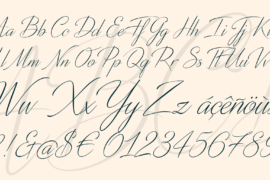 Aa Bb Cc Dd Ee Ff Gg Hh Ii Jj Kk
Mm Nn Oo Pp Qq Rr Ss Tt Uu Vv
Ww Xx Yy Zz áçêñöü
?!&@$€0123456789